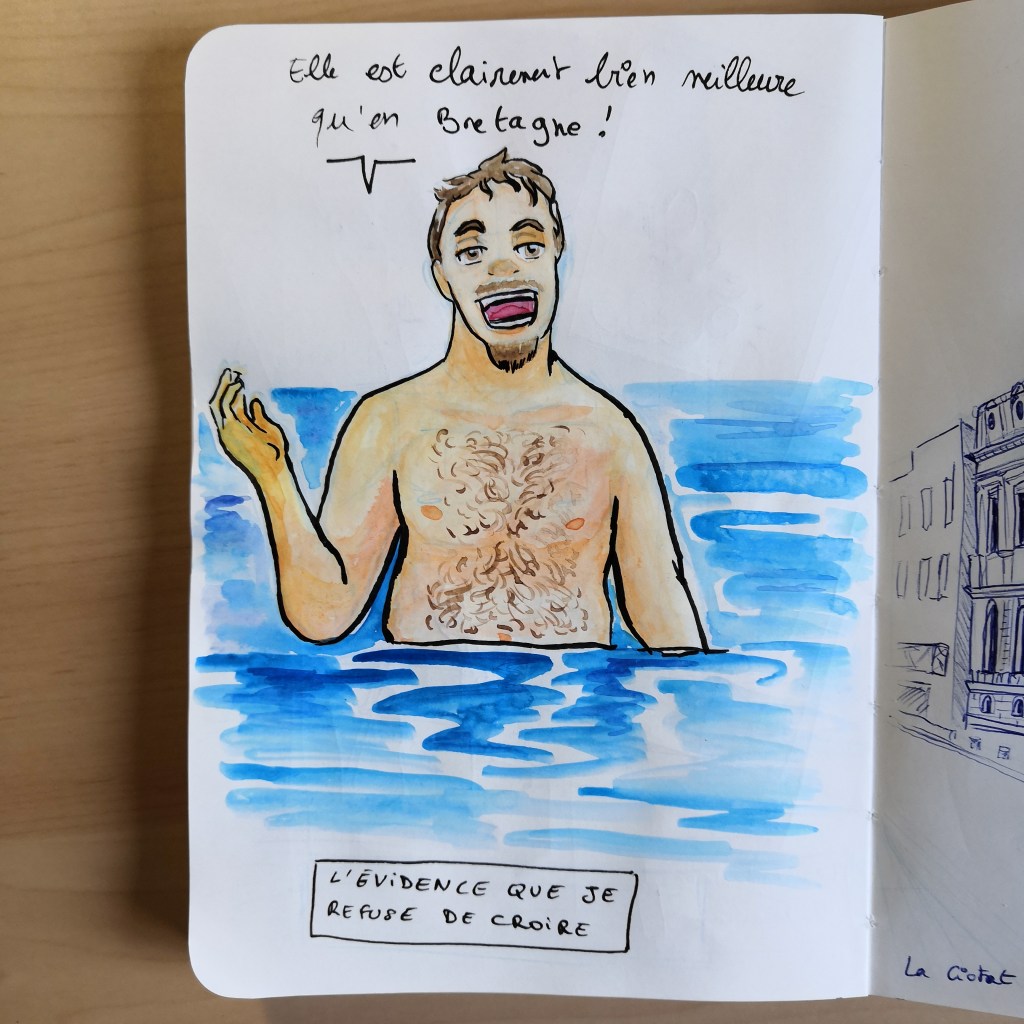 Elle est clairement bien meilleure
qu'en Bretagne !
L'ÉVIDENCE QUE JE
REFUSE DE CROIRE
La Ciotat